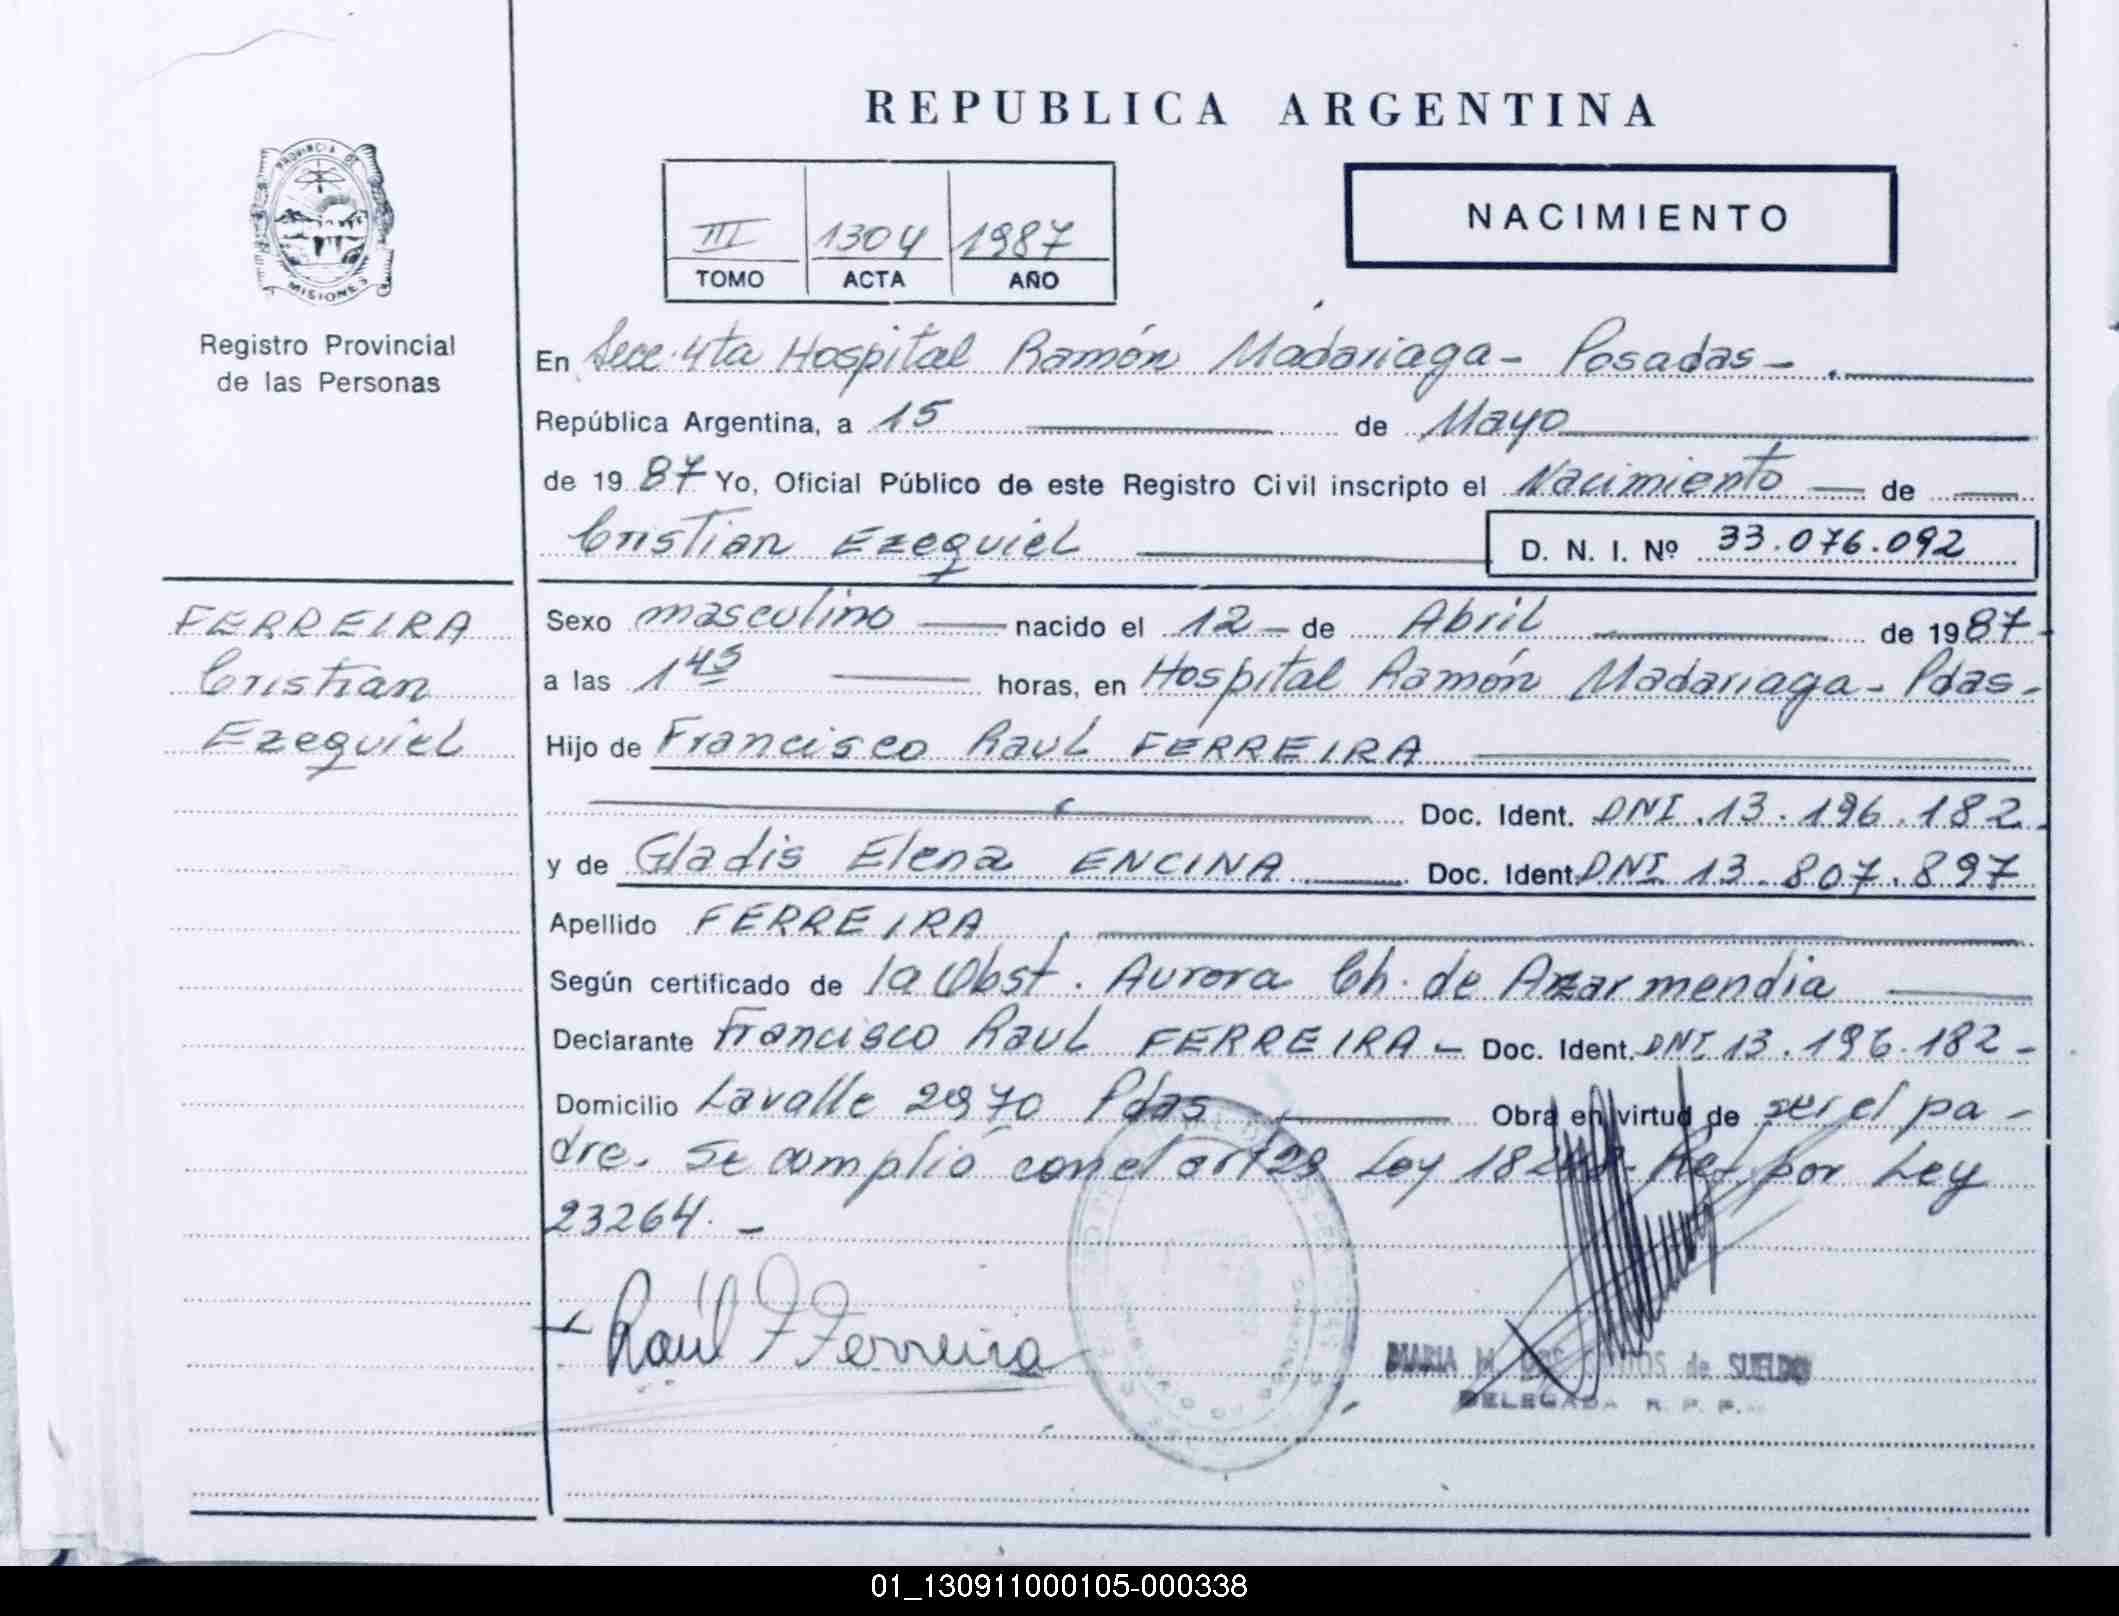 REPUBLICA ARGENTINA
PROVINCIA DE
MISIONES
Registro Provincial
de las Personas
III 1304 1987
TOMO ACTA AÑO
NACIMIENTO
En Secc. 4ta Hospital Ramón Madariaga - Posadas -
República Argentina, a 15 de Mayo
de 1987 Yo, Oficial Público de este Registro Civil inscripto el Nacimiento de
Cristian Ezequiel
D. N. I. Nº 33.076.092
FERREIRA
Cristian
Ezequiel
Sexo masculino nacido el 12 - de Abril de 1987 -
a las 1 45 horas, en Hospital Ramón Madariaga - Pdas -
Hijo de Francisco Raul FERREIRA
Doc. Ident. DNI. 13.196.182 -
y de Gladis Elena ENCINA Doc. Ident. DNI 13.807.897
Apellido FERREIRA
Según certificado de la Obst. Aurora Ch. de Azarmendia
Declarante Francisco Raul FERREIRA - Doc. Ident. DNI 13.196.182 -
Domicilio Lavalle 2970 Pdas Obra en virtud de ser el pa -
dre. Se complió con el art 29 Ley Ref. por Ley
23264. -
Raúl F Ferreira
MARIA M. DOS de SUELDO
DELEGADA R. P. P.
01_130911000105-000338